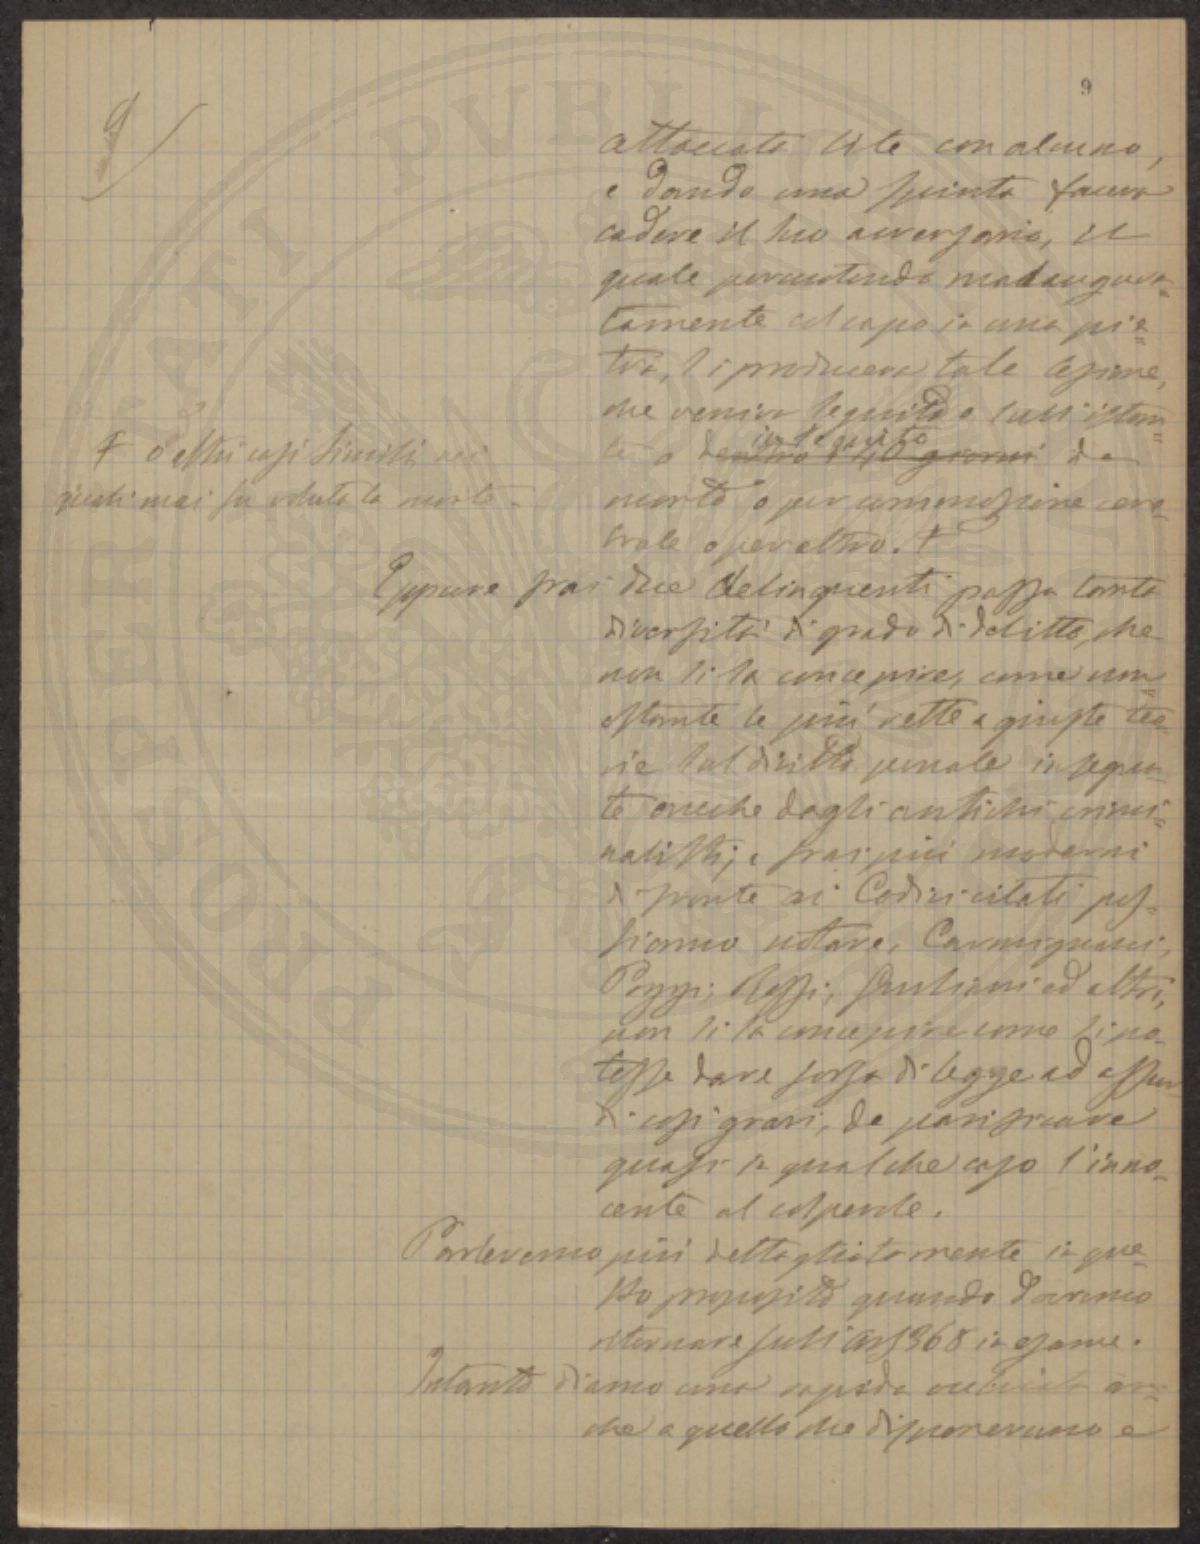 9
9
attaccato lite con alcuno,
e dando una spinta faceva
cadere il suo avversario, il
quale percuotendo malaugura=
tamente col capo in una pie=
tra, si produceva tale lesione,
che veniva seguita o sull'istan=
te o dentro i 40 giorni da
in seguito
morte o per commozione cere=
brale o per altro. +
+ o altri casi simili nei
quali mai fu voluta la morte.
Eppure frai due delinquenti passa tanta
diversità di grado di delitto, che
non si sa concepire, come non
ostante le più rette e giuste teo=
rie sul diritto penale insegna=
te anche dagli antichi crimi=
nalisti; e frai più moderni
di fronte ai Codici citati pos=
siamo notare, Carmignani,
Poggi, Rossi, Giuliani ed altri,
non si sa concepire come si po=
tesse dare forza di legge ad assur=
di così gravi, da parificare
quasi in qualche caso l'inno=
cente al colpevole.
Parleremo più dettagliatamente in que=
sto proposito quando dovremo
ritornare sull'art 368 in esame.
Intanto diamo una rapida occhiata an=
che a quello che disponevano e
PUBLI
PERLATI
POSSI